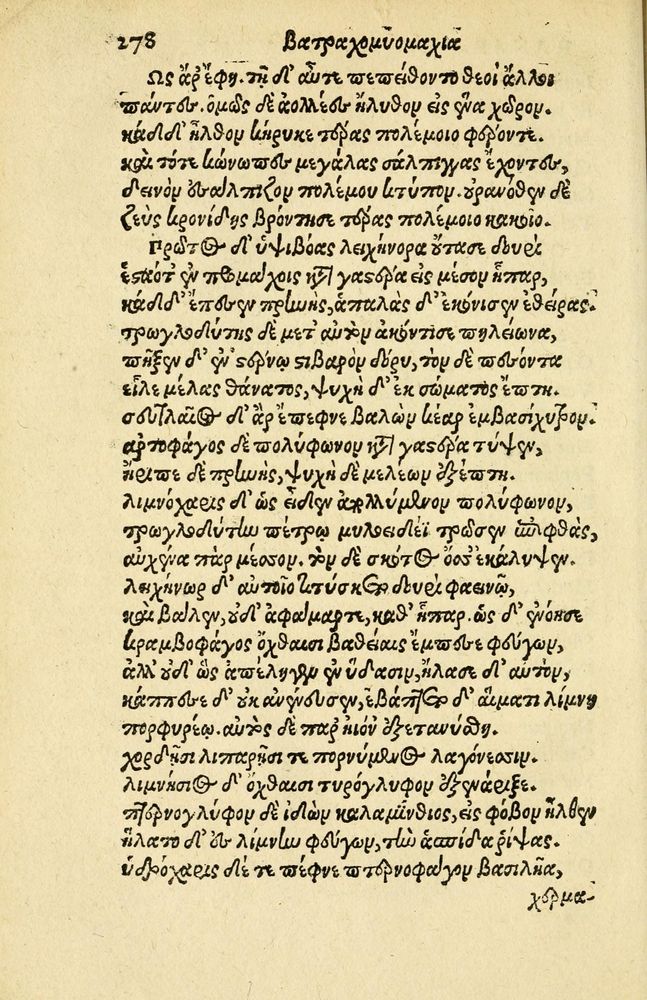 278 Βατραχομυομαχία
Ως ἄρ ἔφη. τῇ δ' αὖτε πεπείθοντο θεοὶ ἄλλοι
πάντες. ὁμῶς δὲ ἀολλέες ἤλυθον εἰς ἕνα χῶρον.
κάδ δ' ἦλθον κήρυκε τέρας πολέμοιο φέροντε.
καὶ τότε κώνωπες μεγάλας σάλπιγγας ἔχοντες,
δεινὸν ἐσάλπιζον πολέμου κτύπον. οὐρανόθεν δὲ
ζεὺς κρονίδης βρόντησε τέρας πολέμοιο κακοῖο.
Πρῶτος δ' ὑψιβόας λειχήνορα οὔτασε δουρὶ
ἑσταότ' ἐν προμάχοις κατὰ γαστέρα εἰς μέσον ἧπαρ,
κάδ δ' ἔπεσεν πρηνὴς, ἁπαλὰς δ' ἐκόνισεν ἐθείρας.
τρωγλοδύτης δὲ μετ' αὐτὸν ἀκόντισε πηλείωνα,
πῆξεν δ' ἐν στέρνῳ στιβαρὸν δόρυ, τὸν δὲ πεσόντα
εἷλε μέλας θάνατος, ψυχὴ δ' ἐκ σώματος ἔπτη.
σευτλαῖος δ' ἂρ ἔπεφνε βαλὼν κέαρ ἐμβασίχυτρον.
αρτοφάγος δὲ πολύφωνον κατὰ γαστέρα τύψεν,
ἤριπε δὲ πρηνὴς, ψυχὴ δὲ μελέων ἐξέπτη.
λιμνόχαρις δ' ὡς εἶδεν ἀπολλύμενον πολύφωνον,
τρωγλοδύτην πέτρῳ μυλοειδέϊ τρῶσεν ἐπιφθὰς,
αὐχένα πὰρ μέσσον. τὸν δὲ σκότος ὄσσ' ἐκάλυψεν.
λειχήνωρ δ' αὐτοῖο τιτύσκετο δουρὶ φαεινῷ,
καὶ βάλεν, οὐδ' ἀφάμαρτε, καθ' ἧπαρ. ὡς δ' ἐνόησε
κραμβοφάγος ὄχθαισι βαθείαις ἔμπεσε φεύγων,
ἀλλ' οὐδ' ὣς ἀπέληγεν ἐν ὕδασιν, ἤλασε δ' αὐτὸν,
κάππεσε δ' οὐκ ἀνένευσεν, ἐβάπτετο δ' αἵματι λίμνη
πορφυρέῳ. αὐτὸς δὲ παρ' ἠιόν' ἐξετανύσθη.
χορδῇσι λιπαρῇσί τε πορνύμενος λαγόνεσσιν.
λιμνήσιος δ' ὄχθαισι τυρόγλυφον ἐξενάριξε.
πτερνογλύφον δὲ ἰδὼν καλαμίνθιος, εἰς φόβον ἦλθεν
ἥλατο δ' ἐς λίμνην φεύγων, τὴν ἀσπίδα ῥίψας.
ὑδρόχαρις δέ τε πέφνε πτερνοφάγον βασιλῆα,
χερμα-